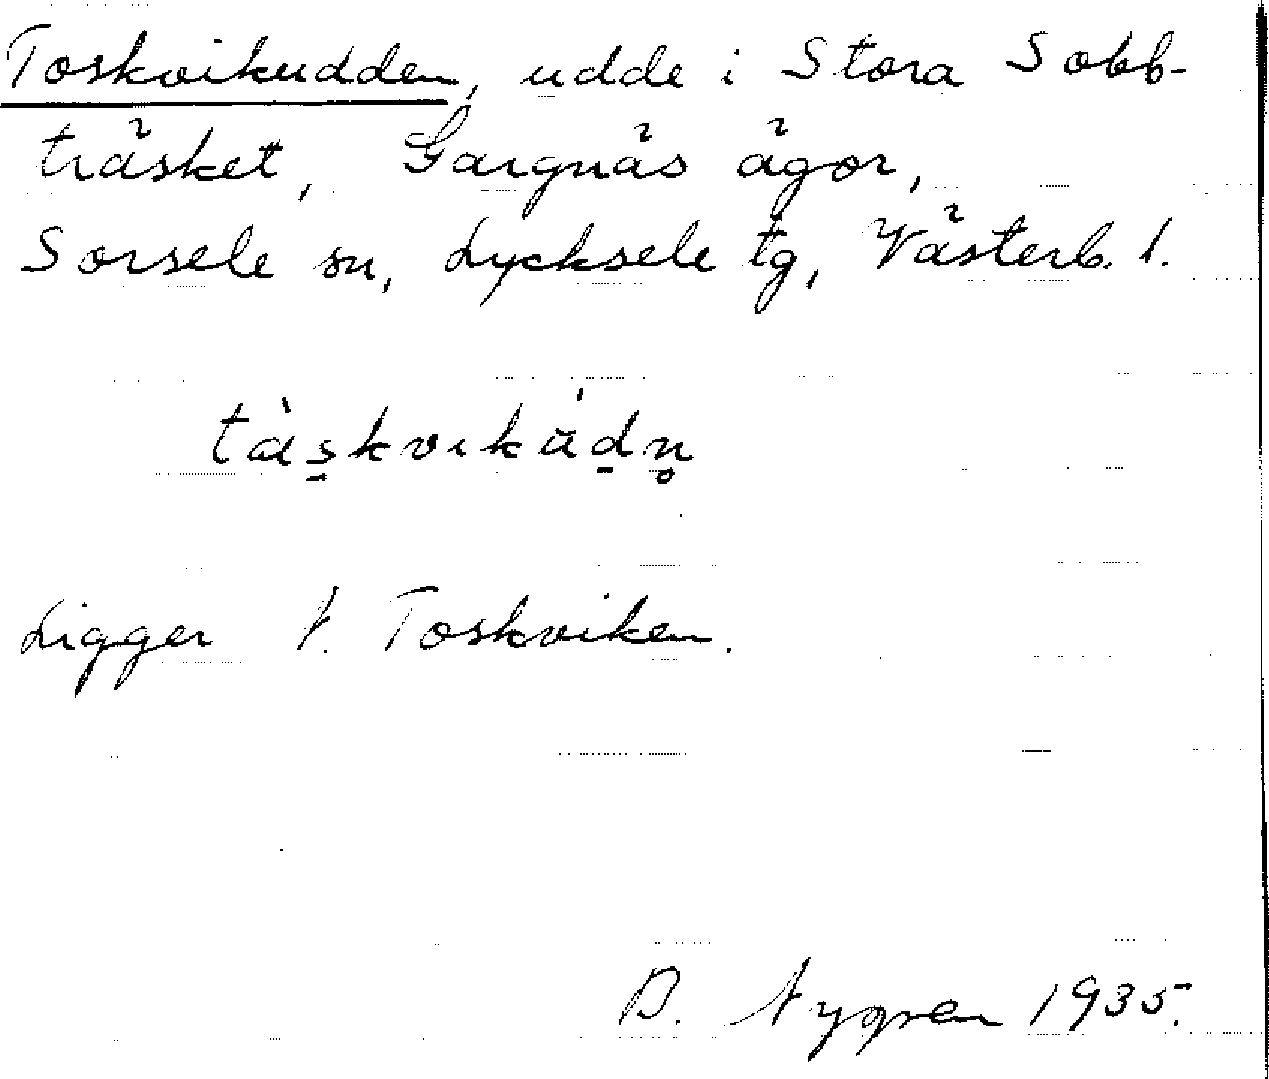 Toskvikudden, udde i Stora Sobb-
träsket, Gargnäs ägor,
Sorsele sn, Lycksele tg, Västerb. l.
tȧs̠kviküd̠n̥
Ligger N. Toskviken.
B. Nygren 1935.